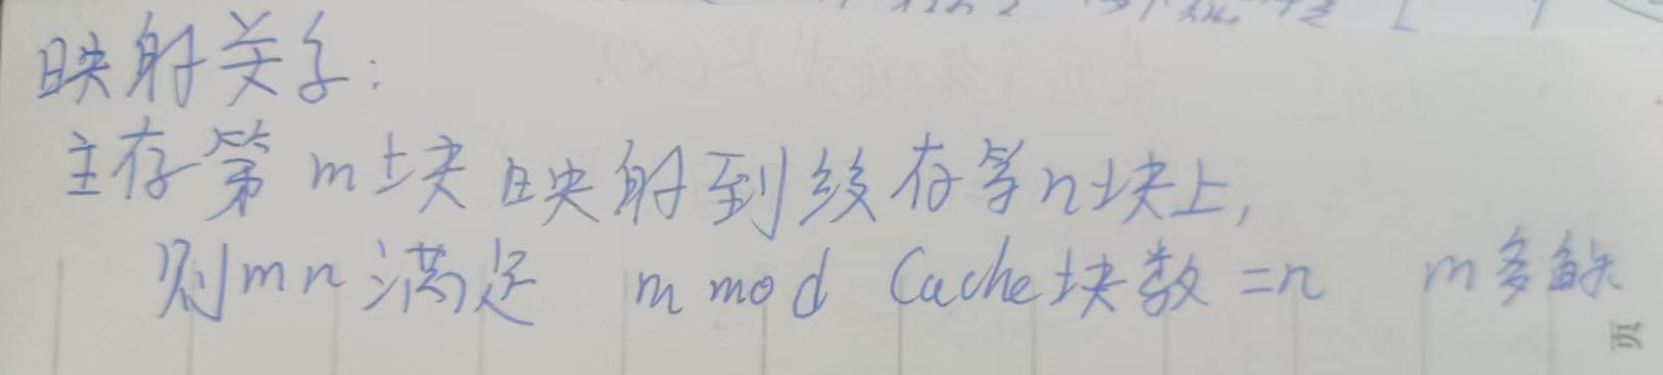 映射关系:
主存第m块映射到缓存第n块上,
则mn满足 m mod Cache块数=n m多
页